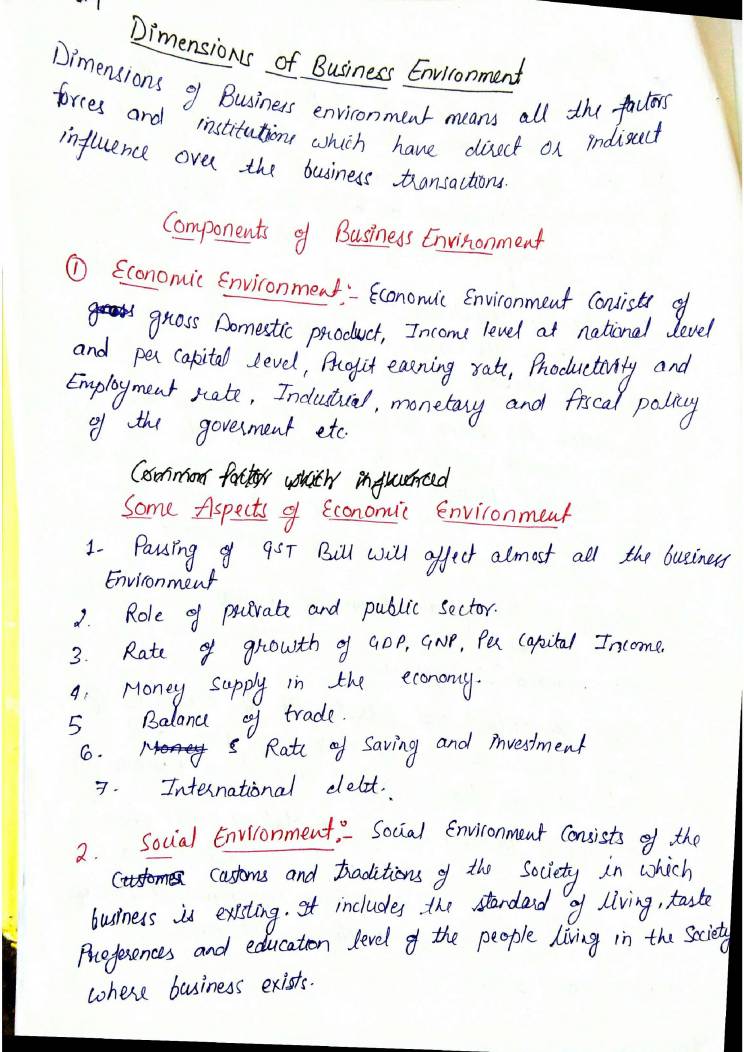 Dimensions of Business Environment
Dimensions of Business environment means all the factors
forces and institutions which have direct or indirect
influence over the business transactions.
Components of Business Environment
① Economic Environment:- Economic Environment Consists of
gross gross Domestic product, Income level at national level
and per capital level, Profit earning rate, Productivity and
Employment rate, Industrial, monetary and fiscal policy
of the goverment etc.
Common factor which influenced
Some Aspects of Economic Environment
1- Passing of GST Bill will affect almost all the business
Environment
2. Role of private and public sector.
3. Rate of growth of GDP, GNP, Per Capital Income.
4. Money Supply in the economy.
5 Balance of trade.
6. Money s Rate of Saving and investment
7. International debt.
2. Social Environment:- Social Environment Consists of the
Customer Customs and traditions of the Society in which
business is existing. It includes the standard of living, taste
Preferences and education level of the people living in the Society
where business exists.